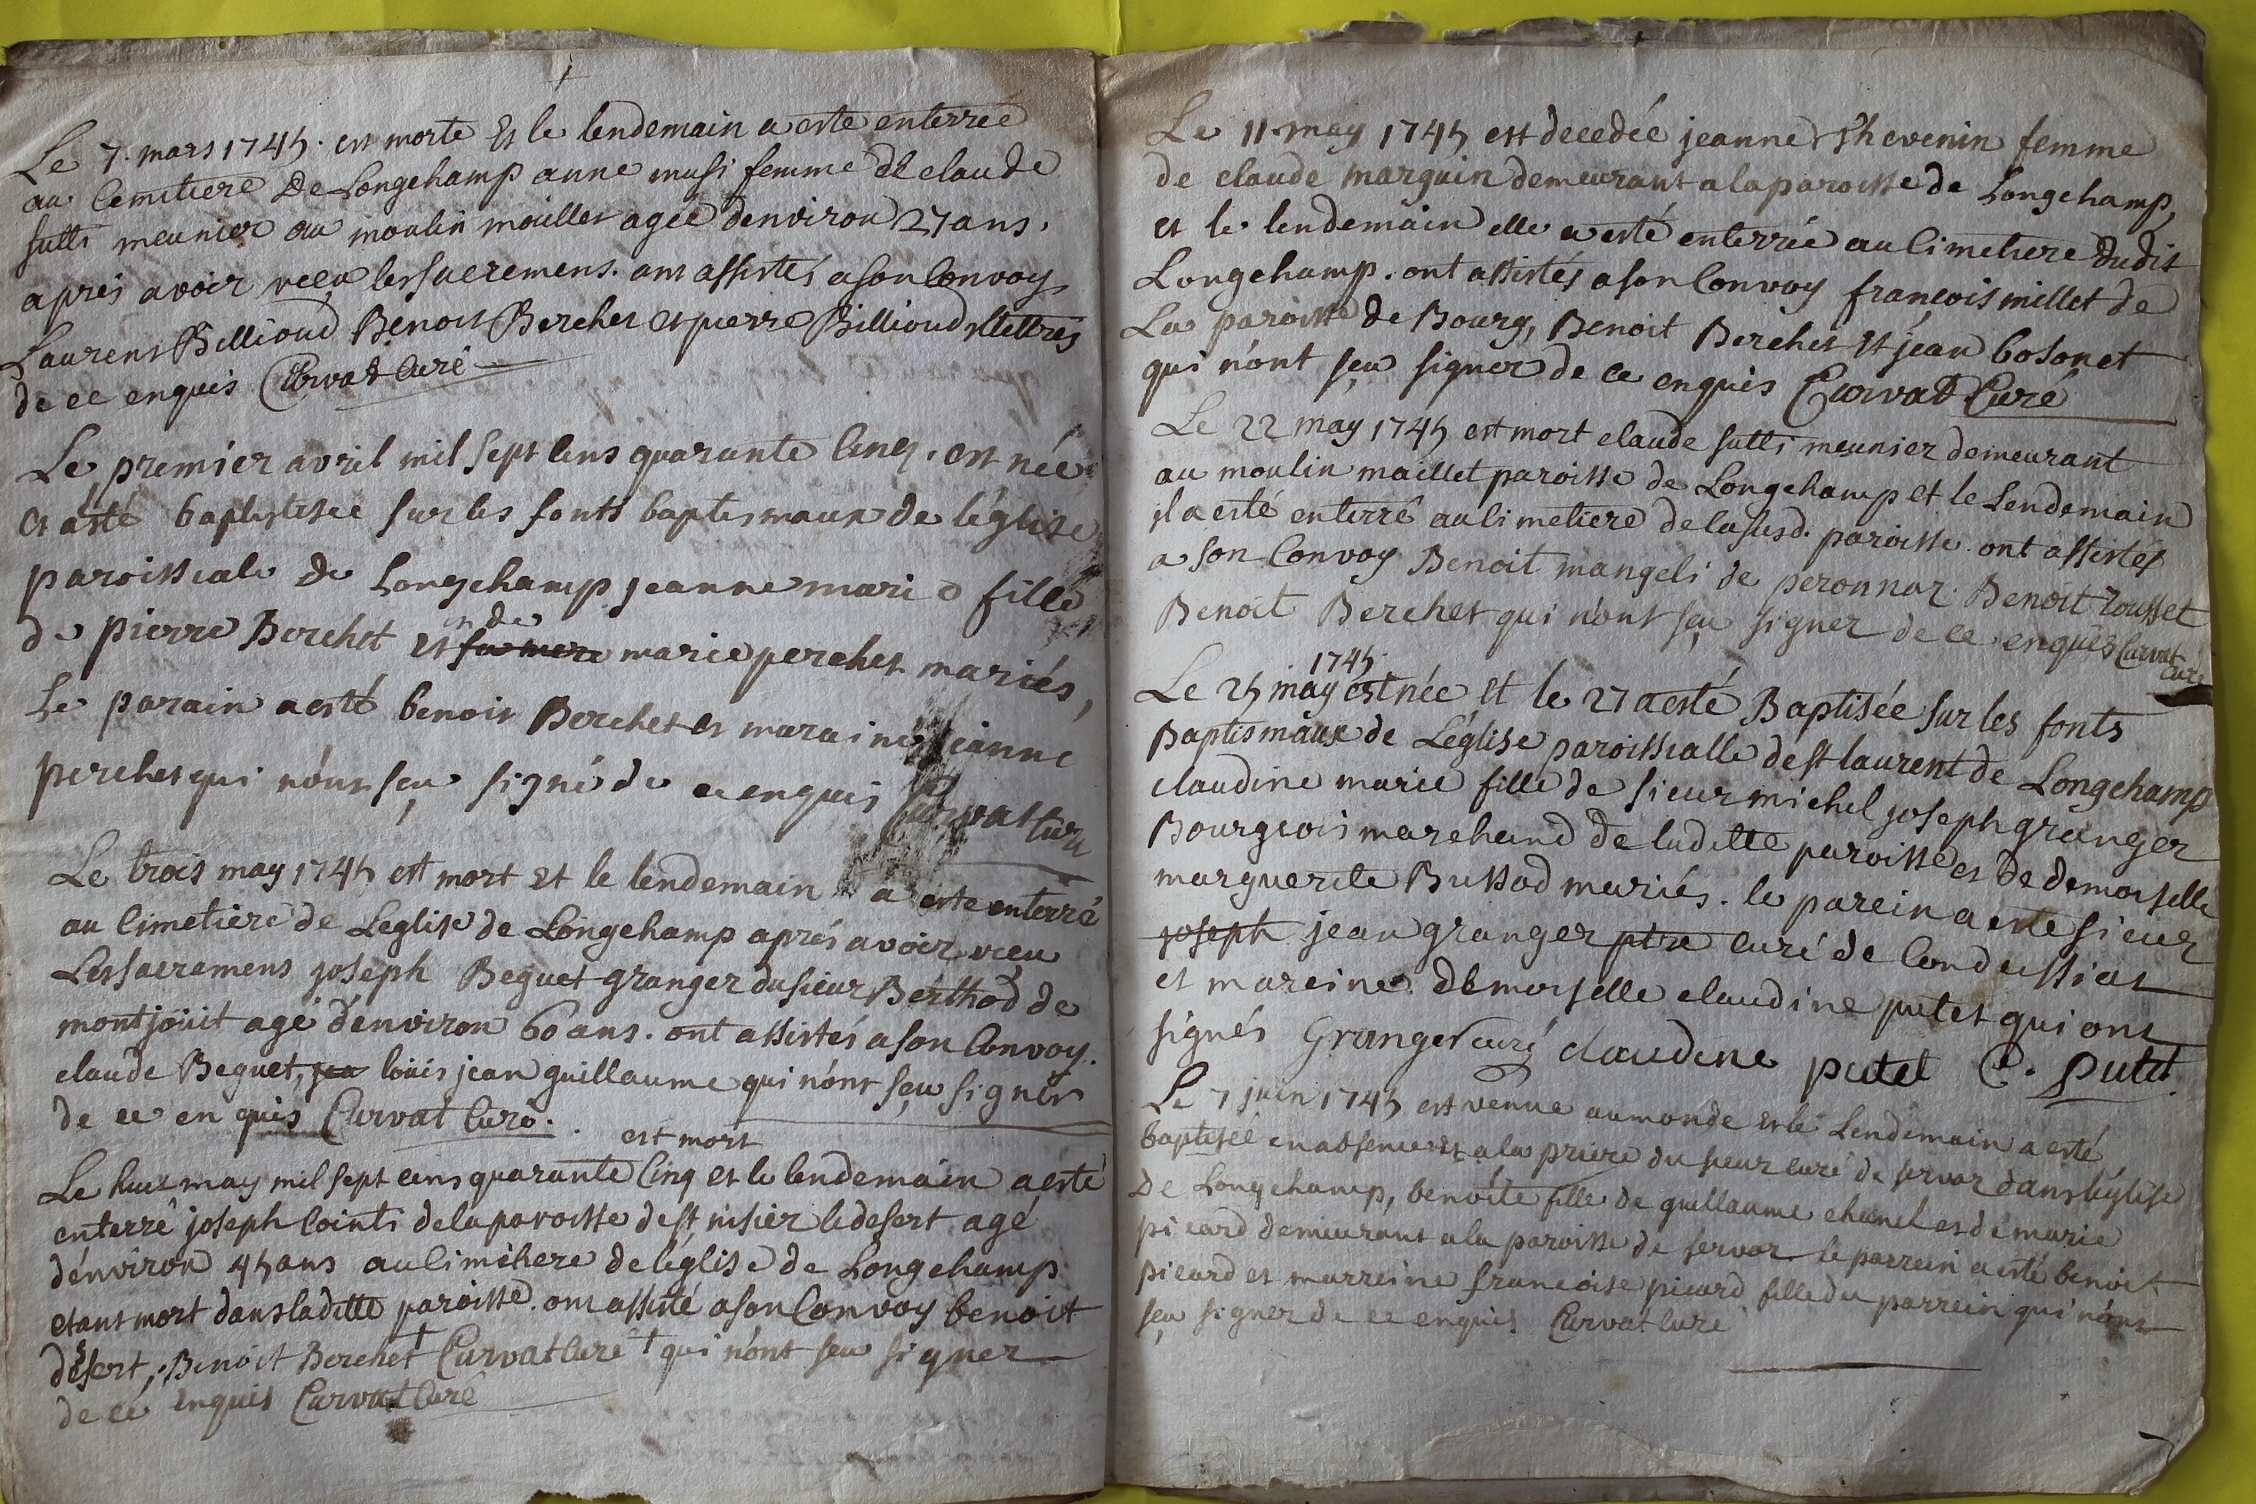 Le 7. mars 1745. est morte Et le lendemain a este enterrée
au Cemitiere De Longchamp anne musi femme de claude
sutti meunier au moulin maillet agée denviron 27 ans.
aprés avoir reçu les sacremens. ont assistés a son Convoy
Laurent Billioud Benoit Berchet et pierre Billioud illettrés
de ce enquis Curvat Curé
Le premier avril mil sept cens quarante Cinq. est née
et a esté baptistisée sur les fonts baptismaux de l'église
paroissiale de Longchamp jeanne marie fille
de pierre Berchet et de marie perchet mariés,
Le parain a esté benoit Berchet et maraine jeanne
perchet qui n'ont sçu signé de ce enquis Curvat Curé
Le trois may 1745 est mort et le lendemain a este enterré
au Cimetiere de L'eglise de Longchamp aprés avoir reçu
Les sacremens joseph Beguet granger du sieur Berthod de
montjoüit agé d'environ 60 ans. ont assistés a son Convoy.
claude Beguet, loüis jean guillaume qui n'ont sçu signer
de ce enquis Curvat Curé.
est mort
Le huit may mil sept cens quarante Cinq et le lendemain a esté
enterré joseph Cointi de la paroisse de st nisier le desert agé
d'environ 45 ans au Cimetiere de l'église de Longchamp
etant mort dans laditte paroisse. ont assisté a son Convoy benoit
desert, Benoit Berchet Curvat Curé + qui n'ont sçu signer
de ce enquis Curvat Curé
Le 11 may 1745 est decedée jeanne Thevenin femme
de claude marguin demeurant a la paroisse de Longchamp,
et le lendemain elle a esté enterrée au Cimetiere dudit
Longchamp. ont assistés a son Convoy françois millet de
La paroisse de Bourg, Benoit Berchet et jean bosonet
qui n'ont sçu signer de ce enquis Curvat Curé
Le 22 may 1745 est mort claude sutti meunier demeurant
au moulin maillet paroisse de Longchamp et le Lendemain
il a esté enterré au Cimetiere de la susd. paroisse. ont assistés
a son Convoy Benoit mangeli de peronnar. Benoit rousset
Benoit Berchet qui n'ont sçu signer de ce enquis Curvat
Curé
1745.
Le 25 may est née et le 27 a esté Baptisée sur les fonts
Baptismaux de L'église paroissialle de st laurent de Longchamp
claudine marie fille de sieur michel joseph granger
Bourgeois marchand de laditte paroisse et de demoiselle
marguerite Bussod mariés. le parein a este sieur
joseph jean granger ptre curé de Condeissiat
et mareine demoiselle claudine putet qui ont
signés Granger curé claudine putet C. Putet.
Le 7 juin 1745 est venue au monde et le Lendemain a esté
baptisée en absence et a la priere du sieur curé de servar dans l'église
De Longchamp, benoite fille de guillaume chanel et de marie
picard demeurant a la paroisse de servar le parrein a esté benoit
picard et marreine françoise picard fille du parrein qui n'ont
sçu signer de ce enquis Curvat Curé